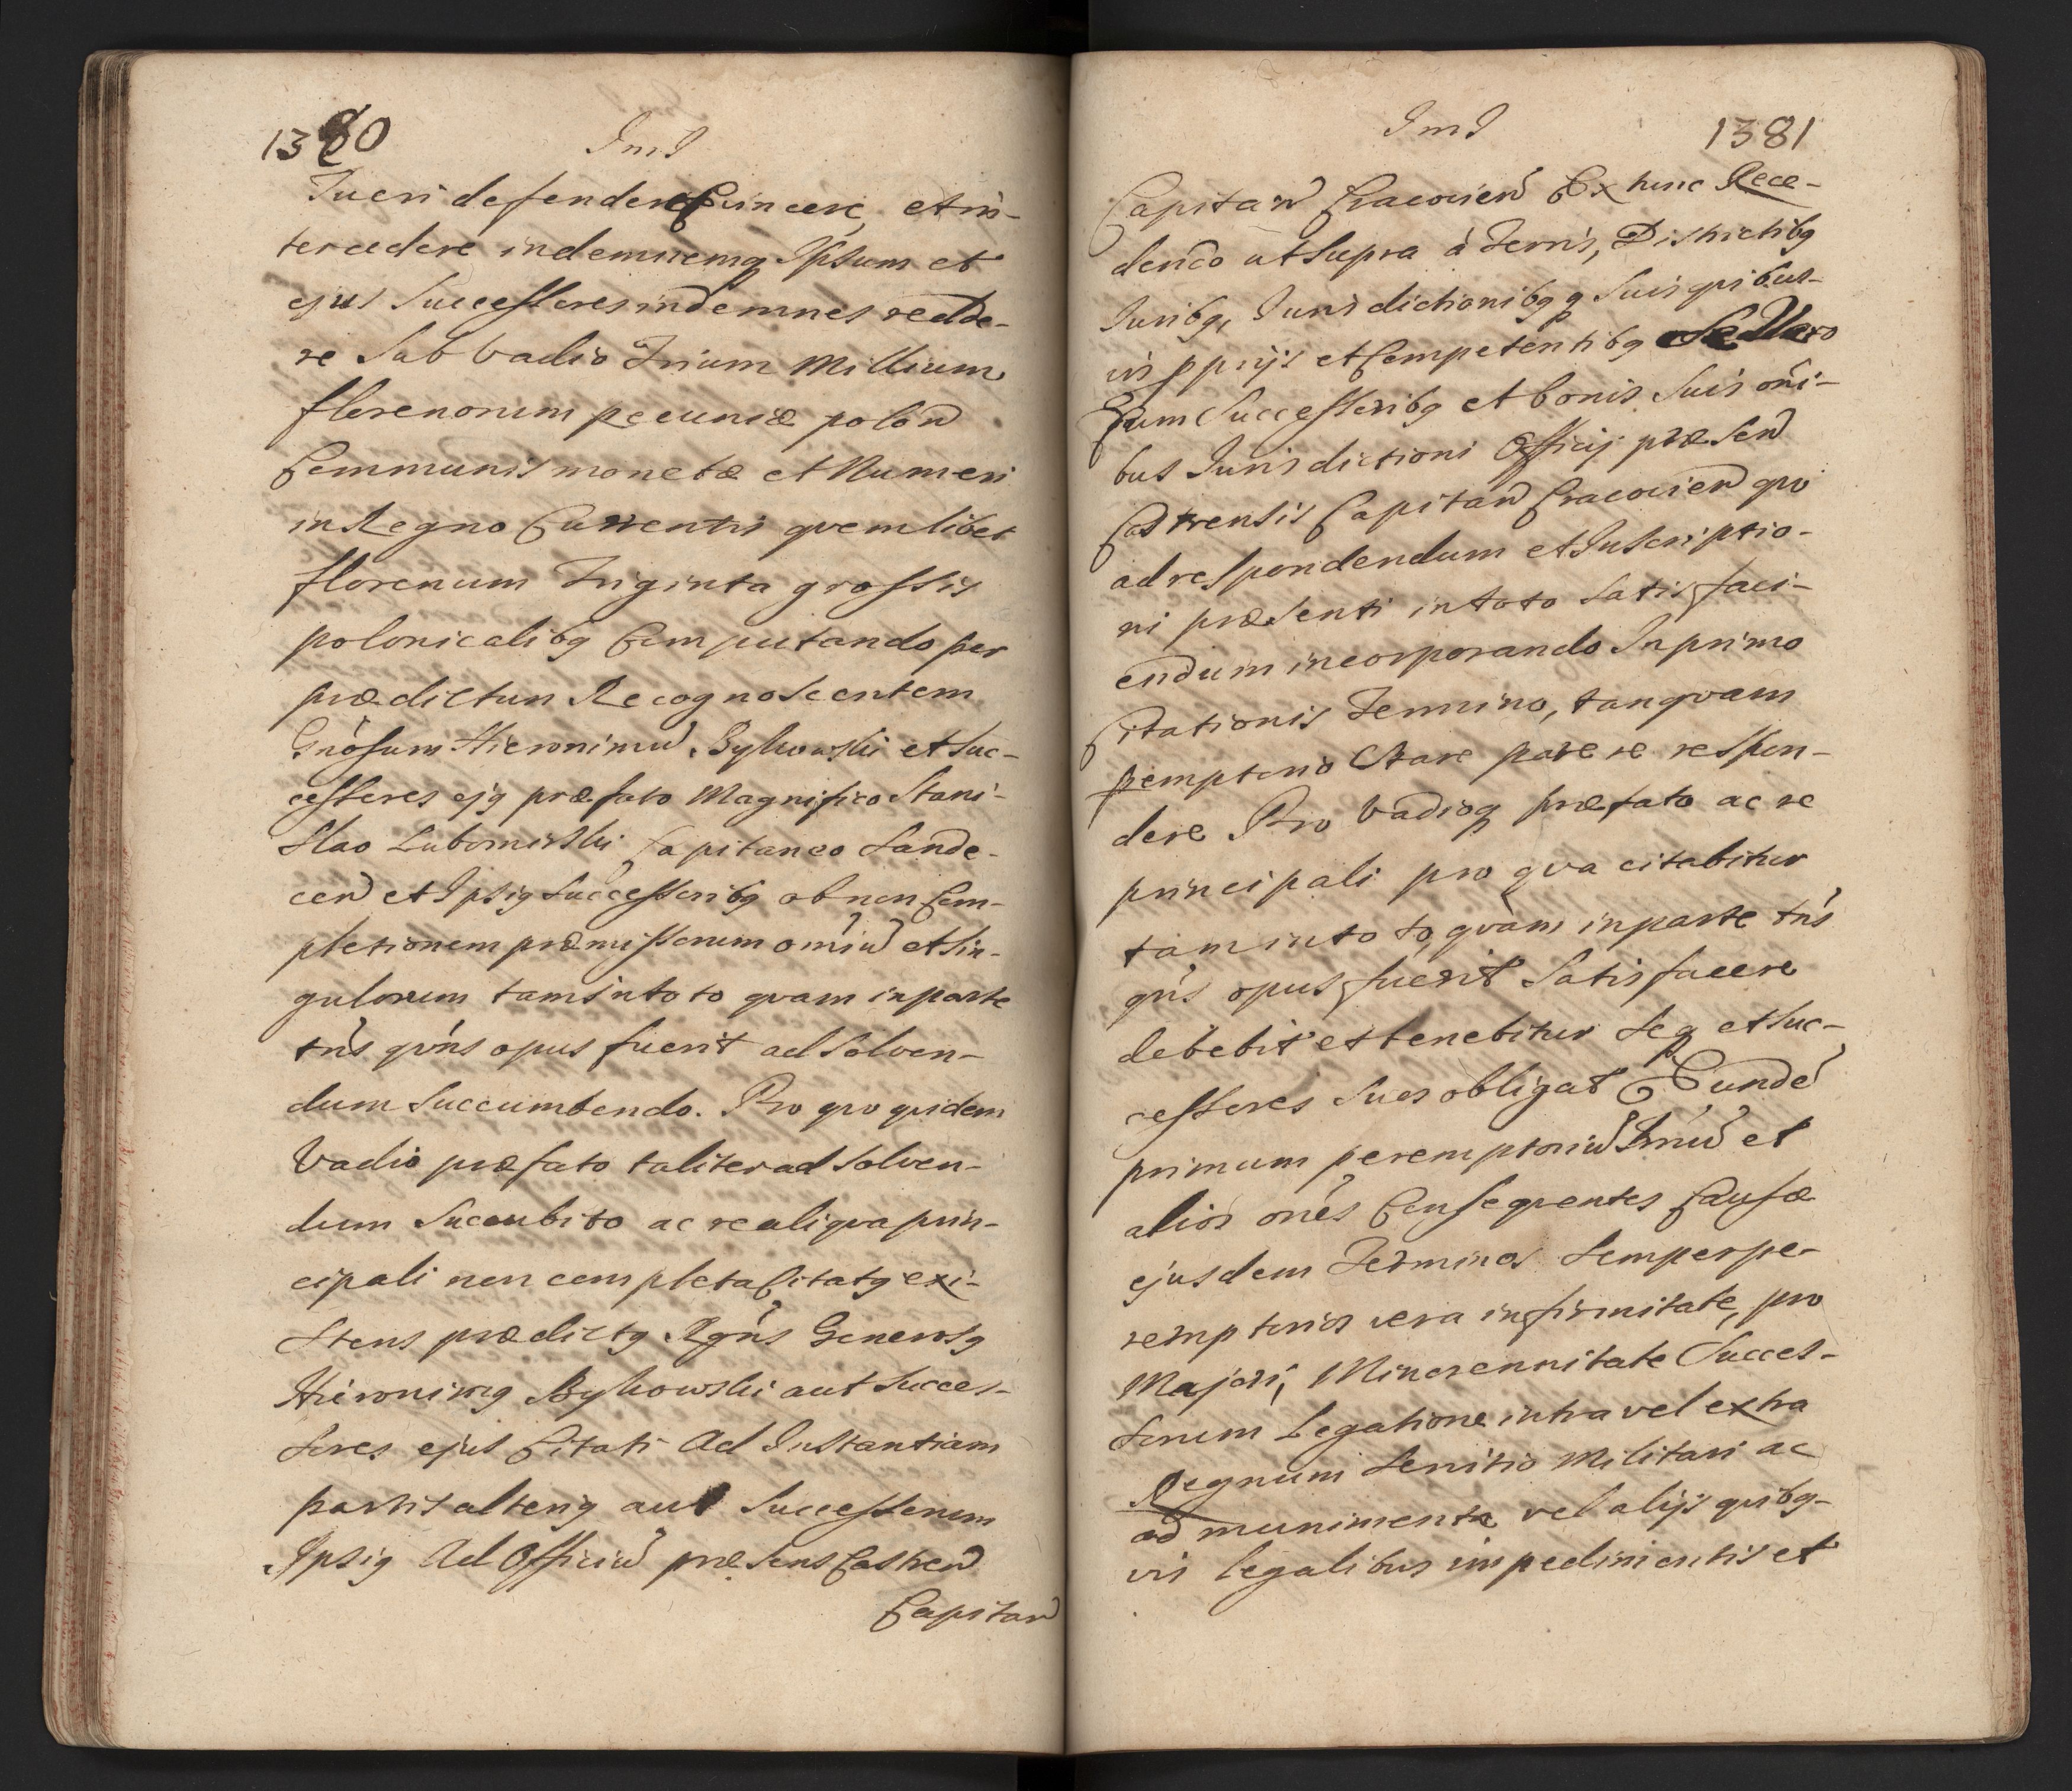 1380
ImI
Tueri defendere Evincere, et in-
tercedere indemnemq Ipsum et
ejus Successores indemnes redde-
re Sub Vadio Trium Millium
florenorum pecuniæ polon
Communis monetæ et Numeri
in Regno Currentis qvemlibet
florenum Triginta grossis
polonicalibq Computando per
prædictum Recognoscentem
Gnosum Hieronimu Bykowski et Suc-
cessores ejq præfato Magnifico Stani-
slao Lubomirski Capitaneo Sande-
cen et Ipsiq Successoribq ob non Com-
pletionem præmissorum omiu et Sin-
gulorum tam in toto qvam in parte
tns qvns opus fuerit ad Solven-
dum Succumbendo. Pro qvo qvidem
Vadio præfato taliter ad Solven-
dum Succubito ac re aliqva prin-
cipali non completa Citatq exi-
stens prædictq Rgns Generosq
Hieronimq Bykowski aut Succes-
sores ejus Citati Ad Instantiam
partis alteriq aut Successorum
Ipsiq Ad Officiu præsens Castren
Capitan
ImI
1381
Capitan Cracovien Ex hinc Rece-
dendo ut Supra à Terris, Districtibq
Juribq, Jurisdictionibqq Suis qvibus-
vis pprijs et Competentibq Se Vero
Cum Successoribq et bonis Suis oni-
bus Jurisdictioni Officij præsen
Castrensis Capitan Cracovien qvo
ad respondendum et Inscriptio-
ni præsenti in toto Satisfaci-
endum incorporando In primo
Citationis Termino, tanqvam
pemptorio Stare parere respon-
dere Pro Vadioq præfato ac re
principali pro qva citabitur
tam in toto, qvam in parte tns
qns opus fuerit Satisfacere
debebit et tenebitur Seq et Suc-
cessores Suos obligat Eunde
primum peremptoriu Tminu et
alios ones Consequentes Causæ
ejusdem Terminos Semper pe-
remptorios vera infirmitate, pro
Majori, Minorennitate Succes-
sorum Legatione intra vel extra
Regnum Servitio Militari ac
ad munimenta vel alijs qvibq-
vis legalibus impedimentis et